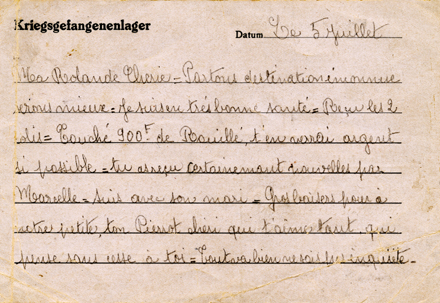 Kriegsgefangenenlager
Datum Le 5 Juillet
Ma Rolande Cherie = Partons destination inconnue
crois mieux = Je suis en très bonne santé = Reçu les 2
colis = Touché 900F de Rouillé, t'en verrai argent
si possible = tu as reçu certainement nouvelles par
Marcelle = Suis avec son mari = Gros baisers pour
notre petite, ton Pierrot chéri qui t'aime tant, qui
pense sans cesse à toi = Tout va bien ne sois pas inquiète -